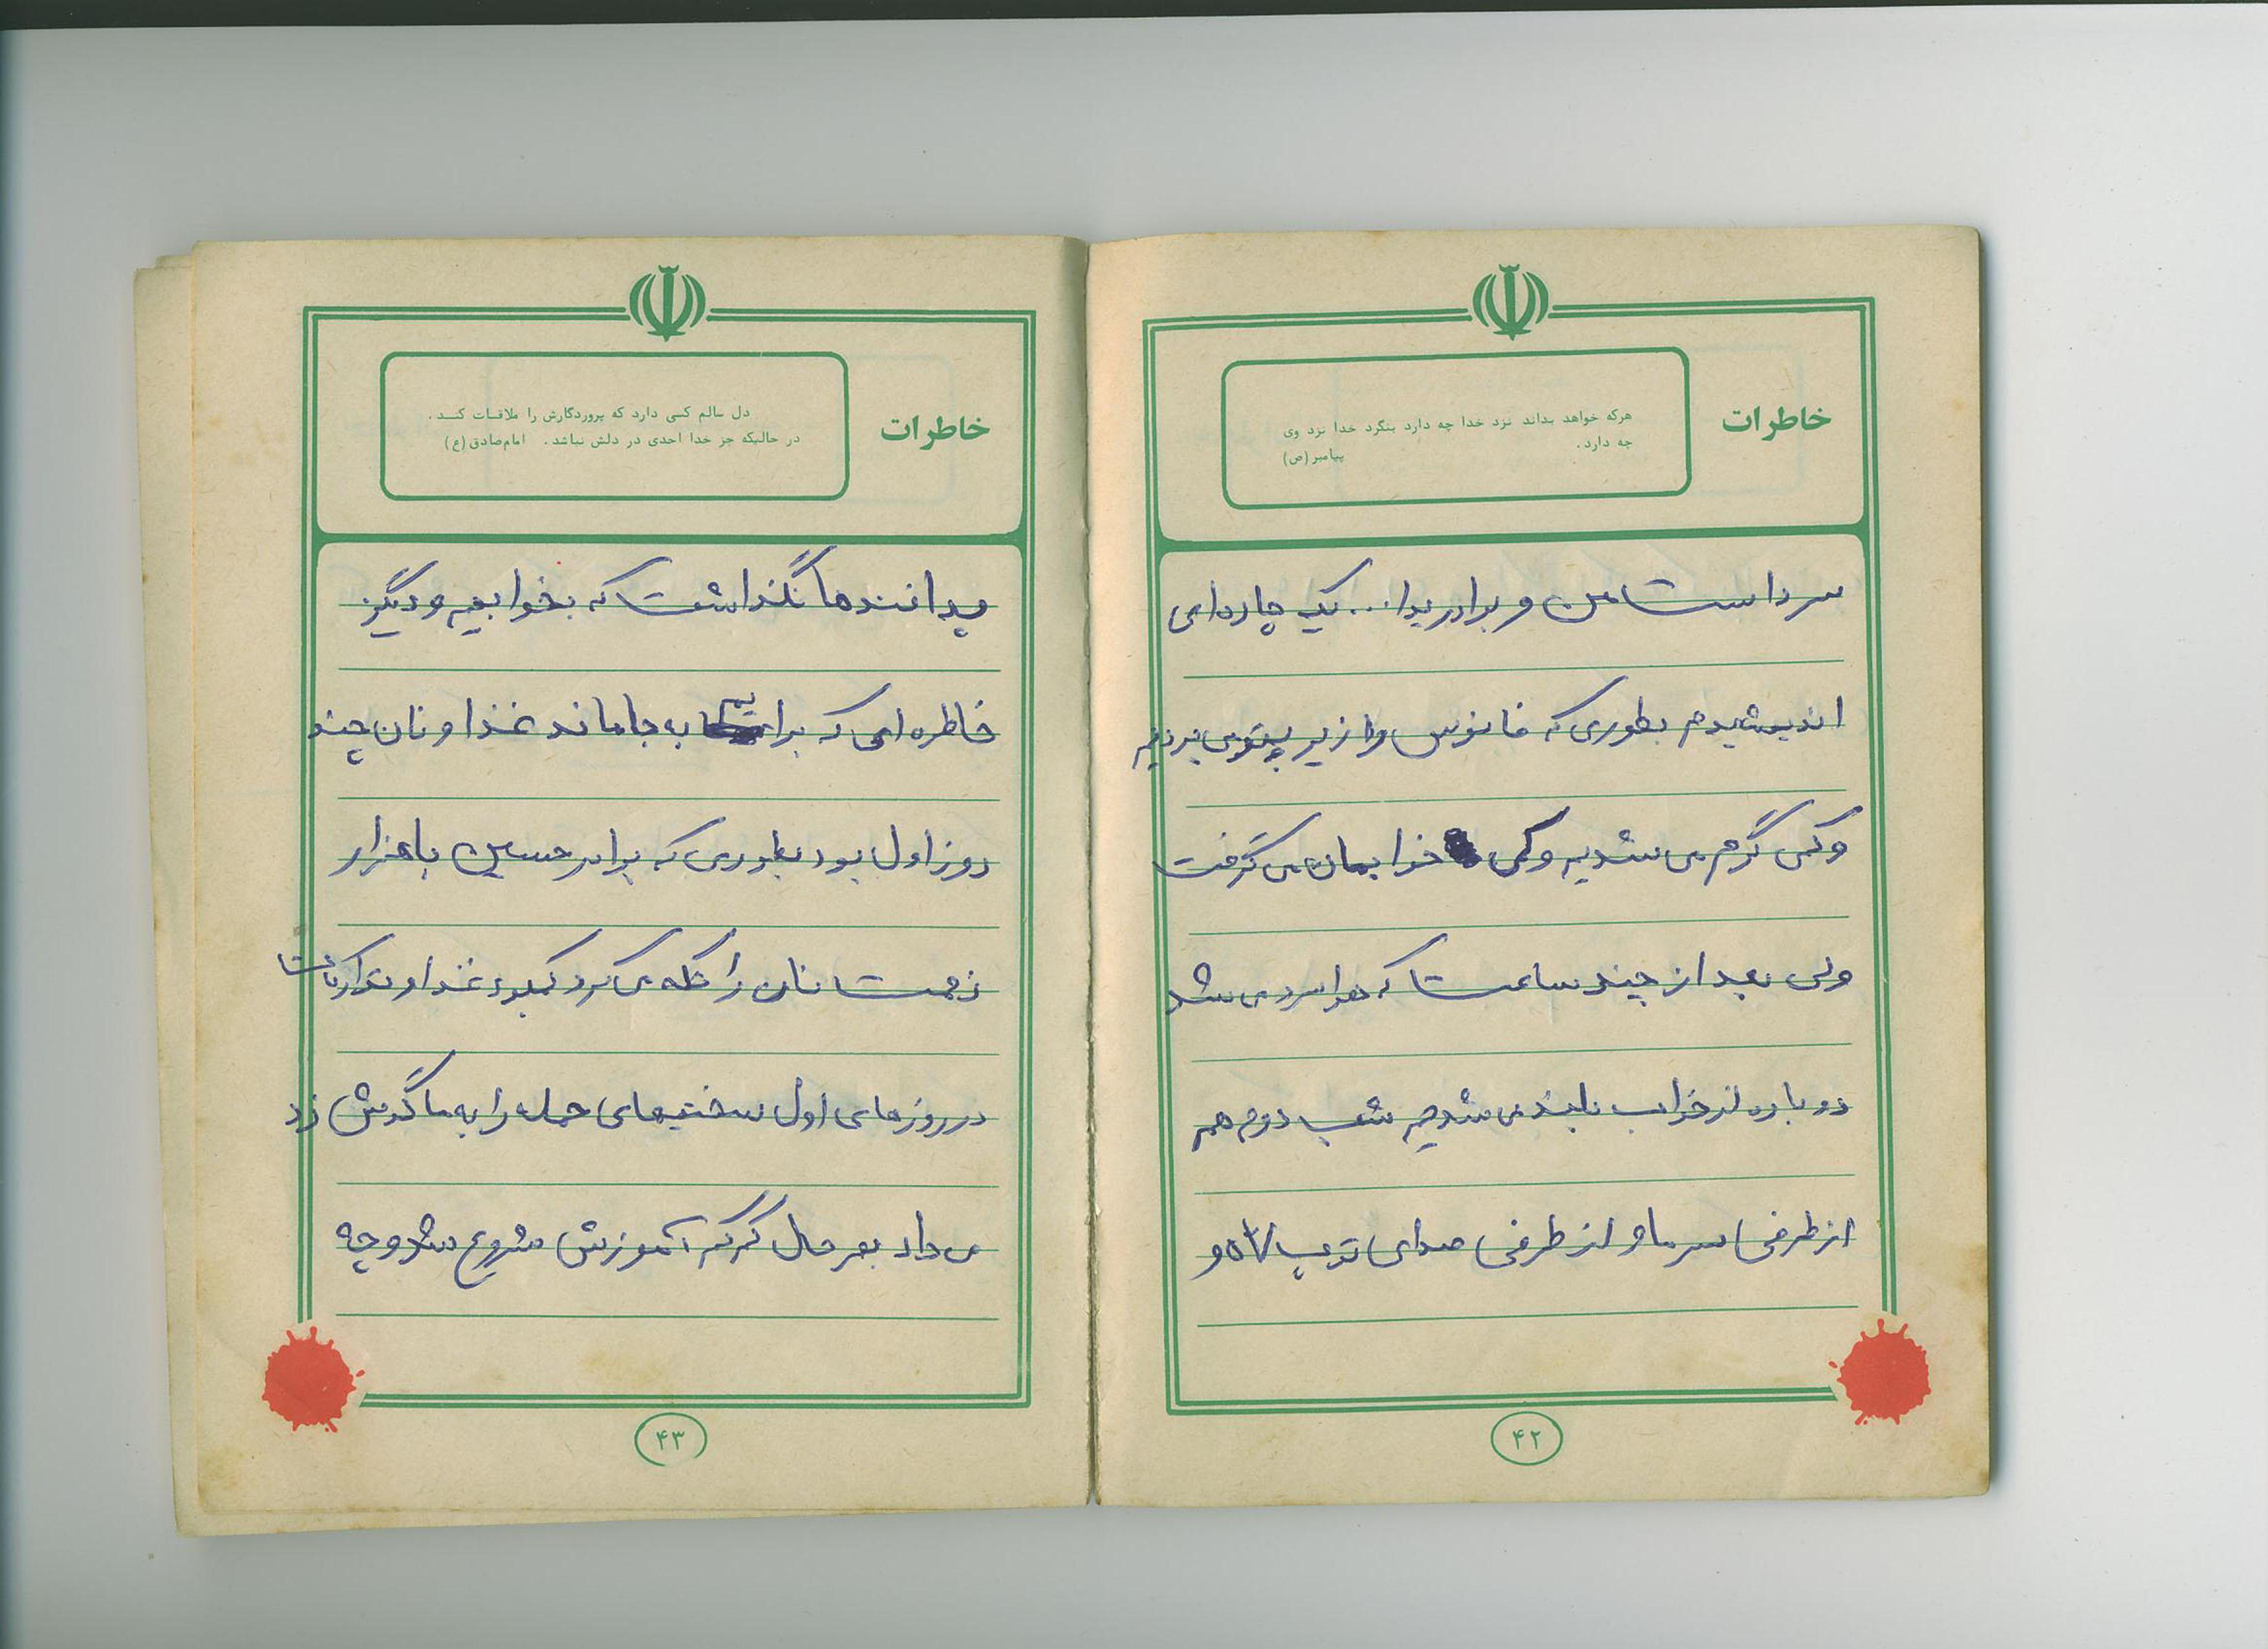 خاطرات
هرکه خواهد بداند نزد خدا چه دارد بنگرد خدا نزد وی
چه دارد.
پیامبر (ص)
سرداست من و برادر یدا... یک چاره‌ای
اندیشیدم بطوری که فانوس را زیر پتو می بردیم
و کمی گرم می شدیم و کمی خوابمان می گرفت
ولی بعد از چند ساعت که هوا سرد می شد
دوباره از خواب بلند می شدیم شب دوم هم
از طرفی سرما و از طرفی صدای توپ و
۴۲
خاطرات
دل سالم کسی دارد که پروردگارش را ملاقات کند.
در حالیکه جز خدا احدی در دلش نباشد. امام صادق (ع)
پدافندها نگذاشت که بخوابیم و دیگر
خاطره ای که به جا ماند غذا و نان چند
روز اول بود بطوری که برادر حسین با هزار
زحمت نان را می کرد کمبود غذا و تدارکات
در روزهای اول سختیهای حمله را به ما گوش زد
می داد بهر حال که آموزش شروع شد و چه
۴۳